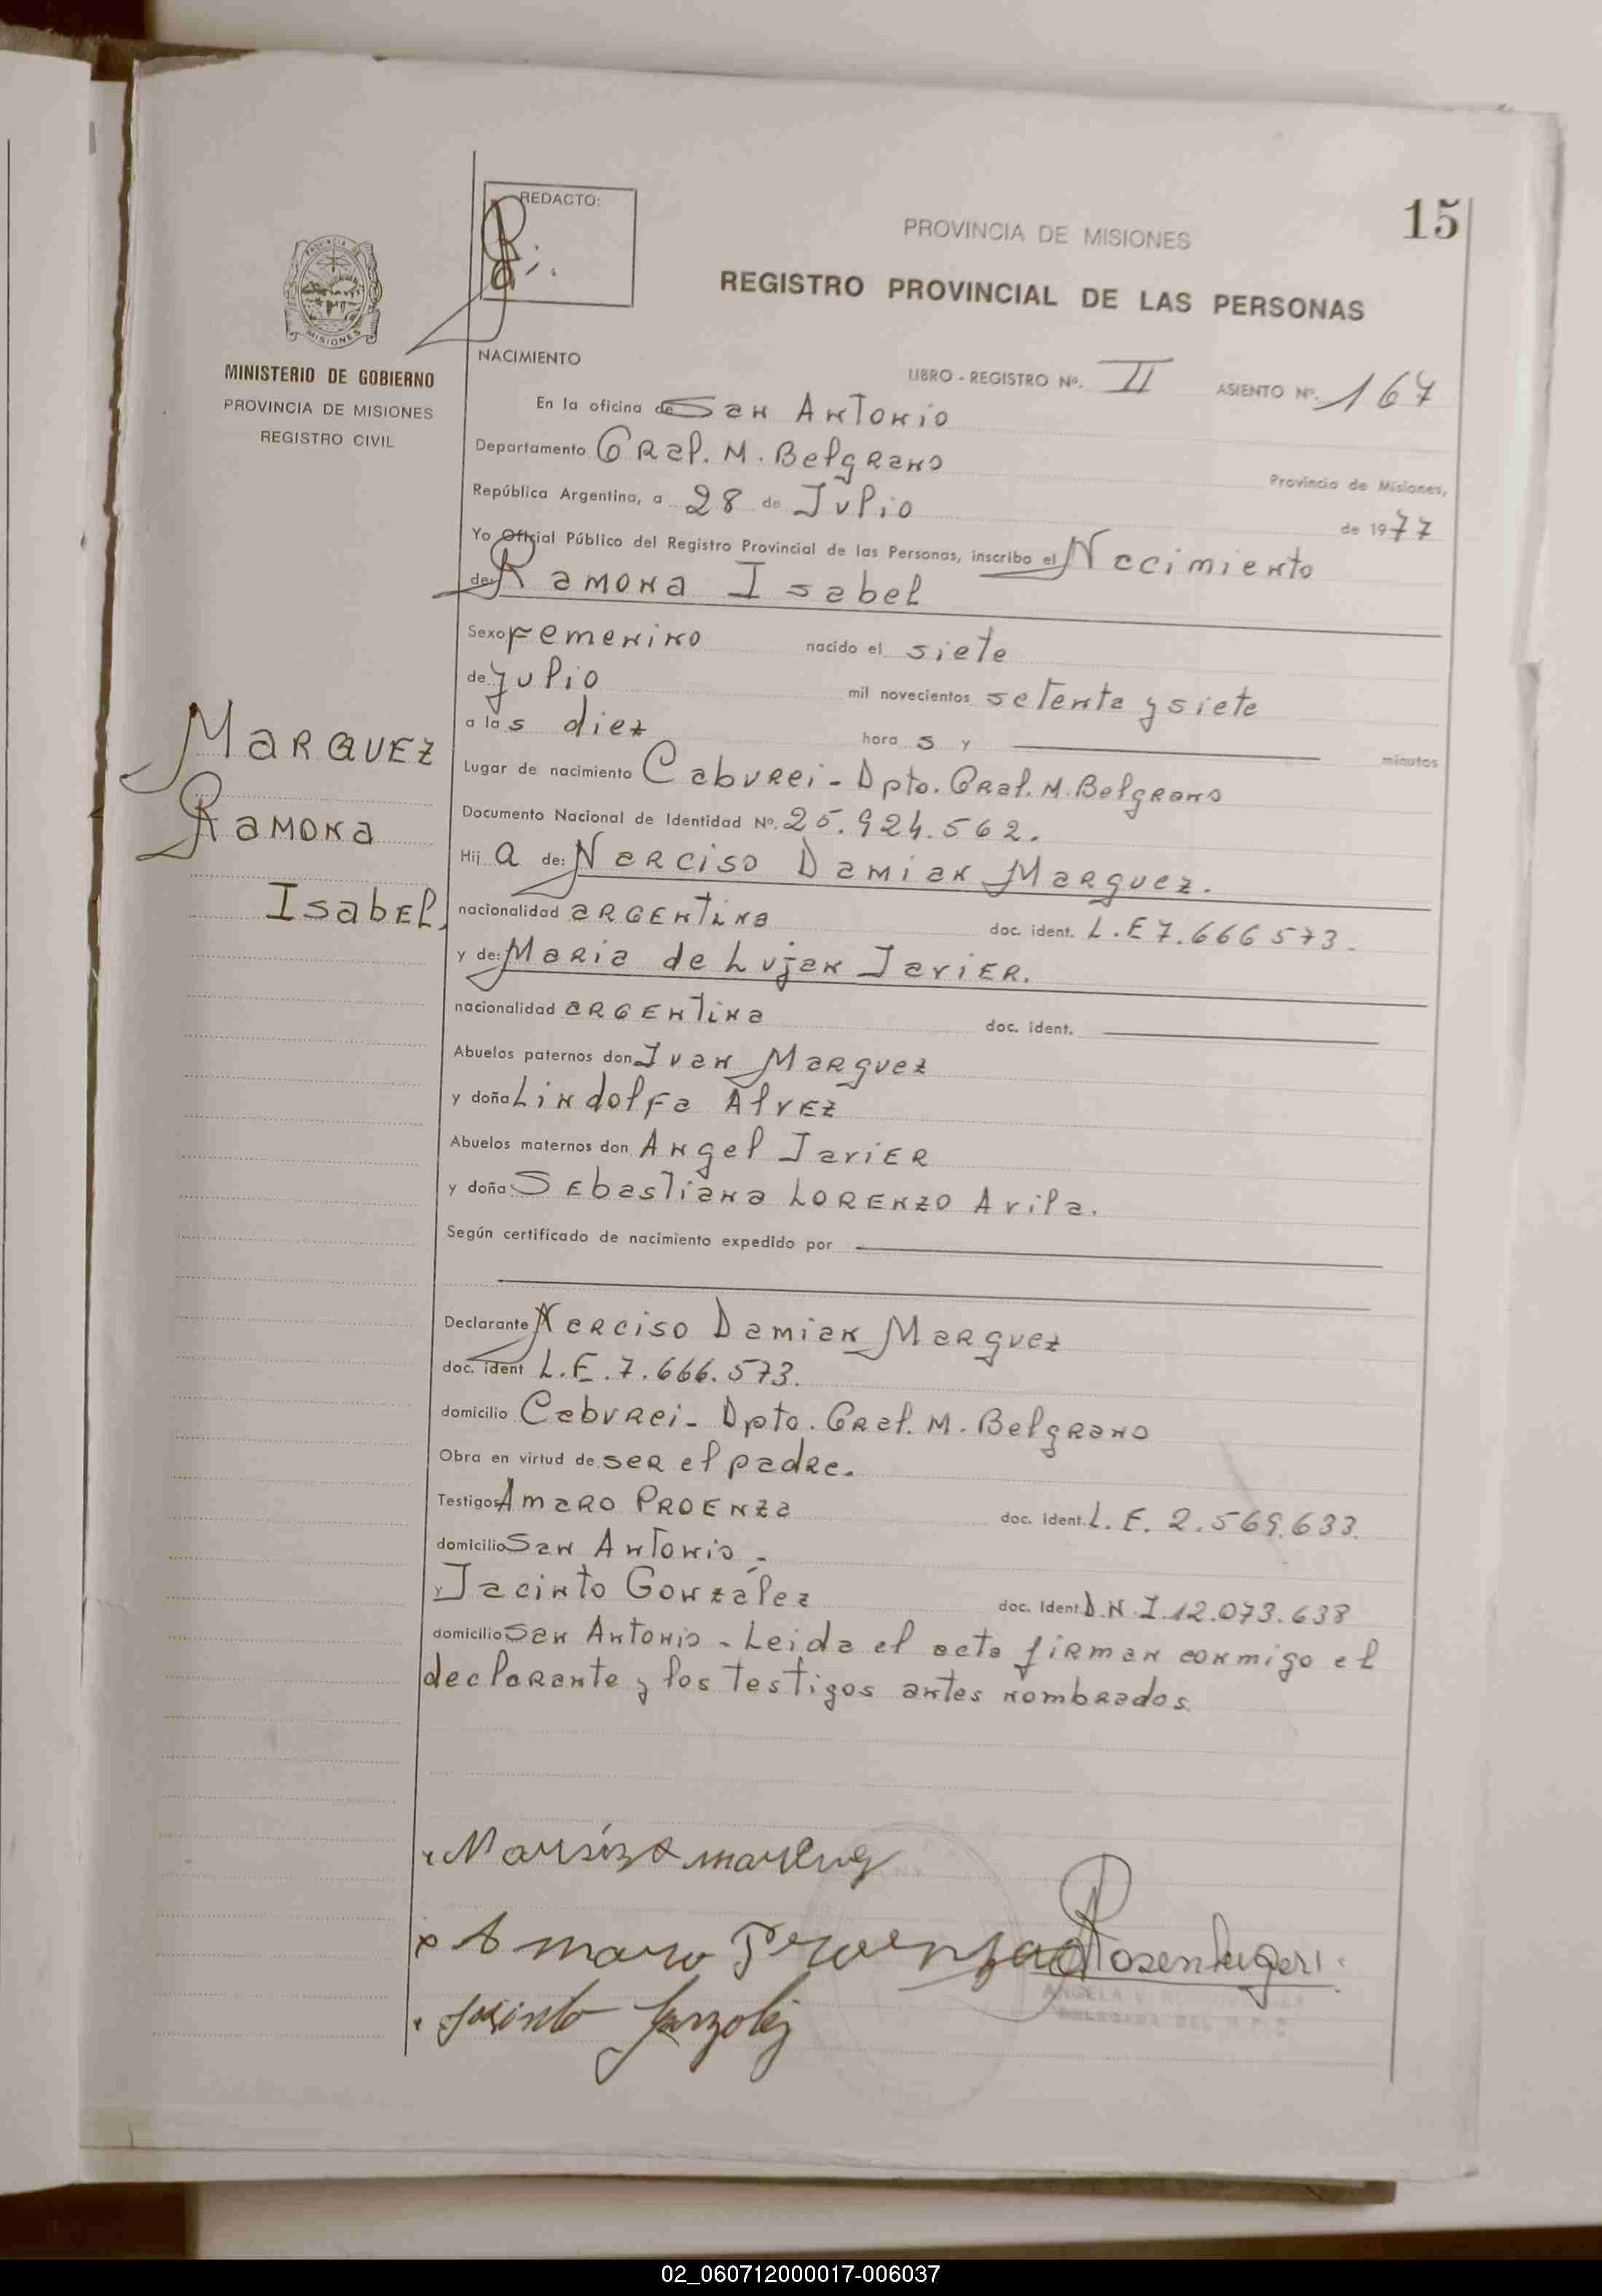 15
REDACTO:
PROVINCIA DE MISIONES
REGISTRO PROVINCIAL DE LAS PERSONAS
PROVINCIA DE
MISIONES
MINISTERIO DE GOBIERNO
PROVINCIA DE MISIONES
REGISTRO CIVIL
NACIMIENTO
LIBRO - REGISTRO Nº. II ASIENTO Nº. 167
En la oficina de San Antonio
Departamento Gral. M. Belgrano Provincia de Misiones,
República Argentina, a 28 de Julio de 1977
Yo Oficial Público del Registro Provincial de las Personas, inscribo el Nacimiento
de: Ramona Isabel
Sexo Femenino nacido el siete
de Julio mil novecientos setenta y siete
a las diez horas y minutos
Lugar de nacimiento Caburei - Dpto. Gral. M. Belgrano
Documento Nacional de Identidad Nº. 25.924.562.
Hija de: Narciso Damian Marquez.
nacionalidad argentina doc. ident. L.E 7.666573.
y de: Maria de Lujan Javier.
nacionalidad argentina doc. ident.
Abuelos paternos don Ivan Marquez
y doña Lindolfa Alvez
Abuelos maternos don Angel Javier
y doña Sebastiana Lorenzo Avila.
Según certificado de nacimiento expedido por
Declarante Narciso Damian Marquez
doc. ident L.E. 7.666.573.
domicilio Caburei - Dpto. Gral. M. Belgrano
Obra en virtud de ser el padre.
Testigos Amaro Proenza doc. ident. L.E. 2.569.633.
domicilio San Antonio.-
y Jacinto González doc. Ident. D.N.I. 12.073.638
domicilio San Antonio - Leida el acta firman conmigo el
declarante y los testigos antes nombrados.
Marquez
Ramona
Isabel.
Amaro Proenza
Jacinto
ANGELA V.
DELEGADA DEL R.P.
02_060712000017-006037